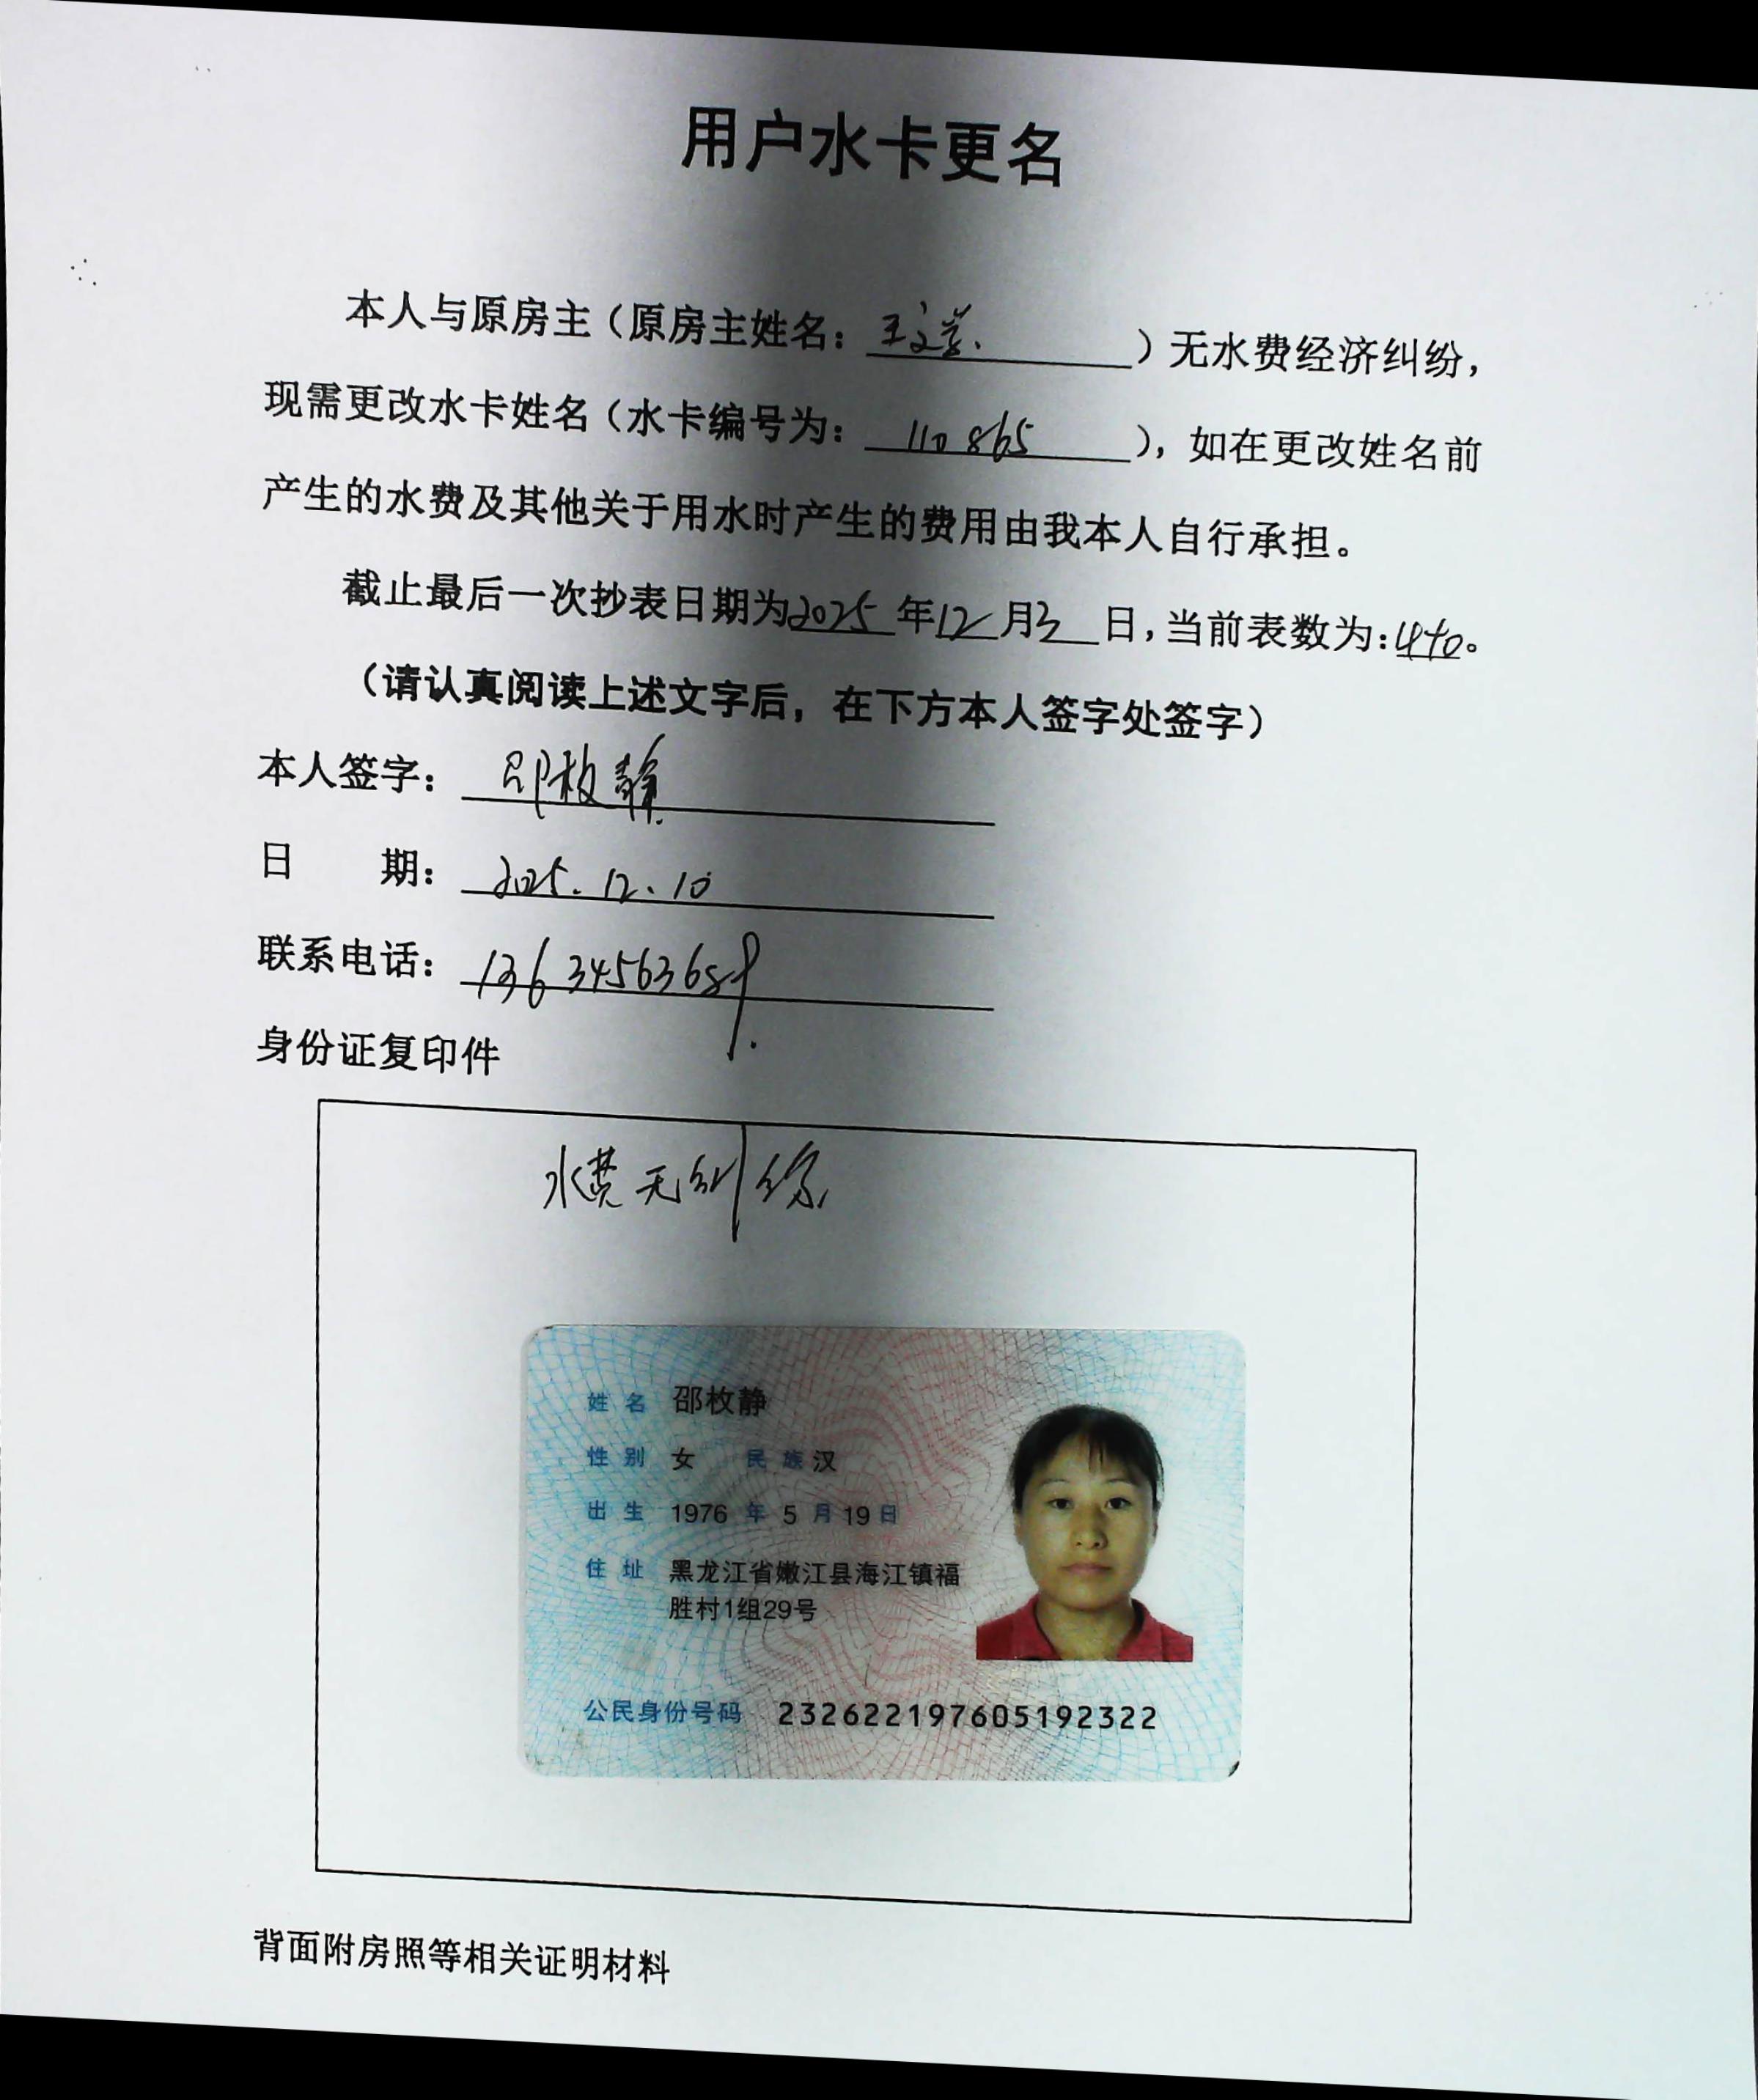 用户水卡更名
本人与原房主（原房主姓名：王文学）无水费经济纠纷，
现需更改水卡姓名（水卡编号为：110865），如在更改姓名前
产生的水费及其他关于用水时产生的费用由我本人自行承担。
截止最后一次抄表日期为2025年12月3日，当前表数为：440。
（请认真阅读上述文字后，在下方本人签字处签字）
本人签字：邵枚静
日 期：2025.12.10
联系电话：13634563659
身份证复印件
水费无纠纷
姓名 邵枚静
性别 女 民族 汉
出生 1976年5月19日
住址 黑龙江省嫩江县海江镇福
胜村1组29号
公民身份号码 232622197605192322
背面附房照等相关证明材料